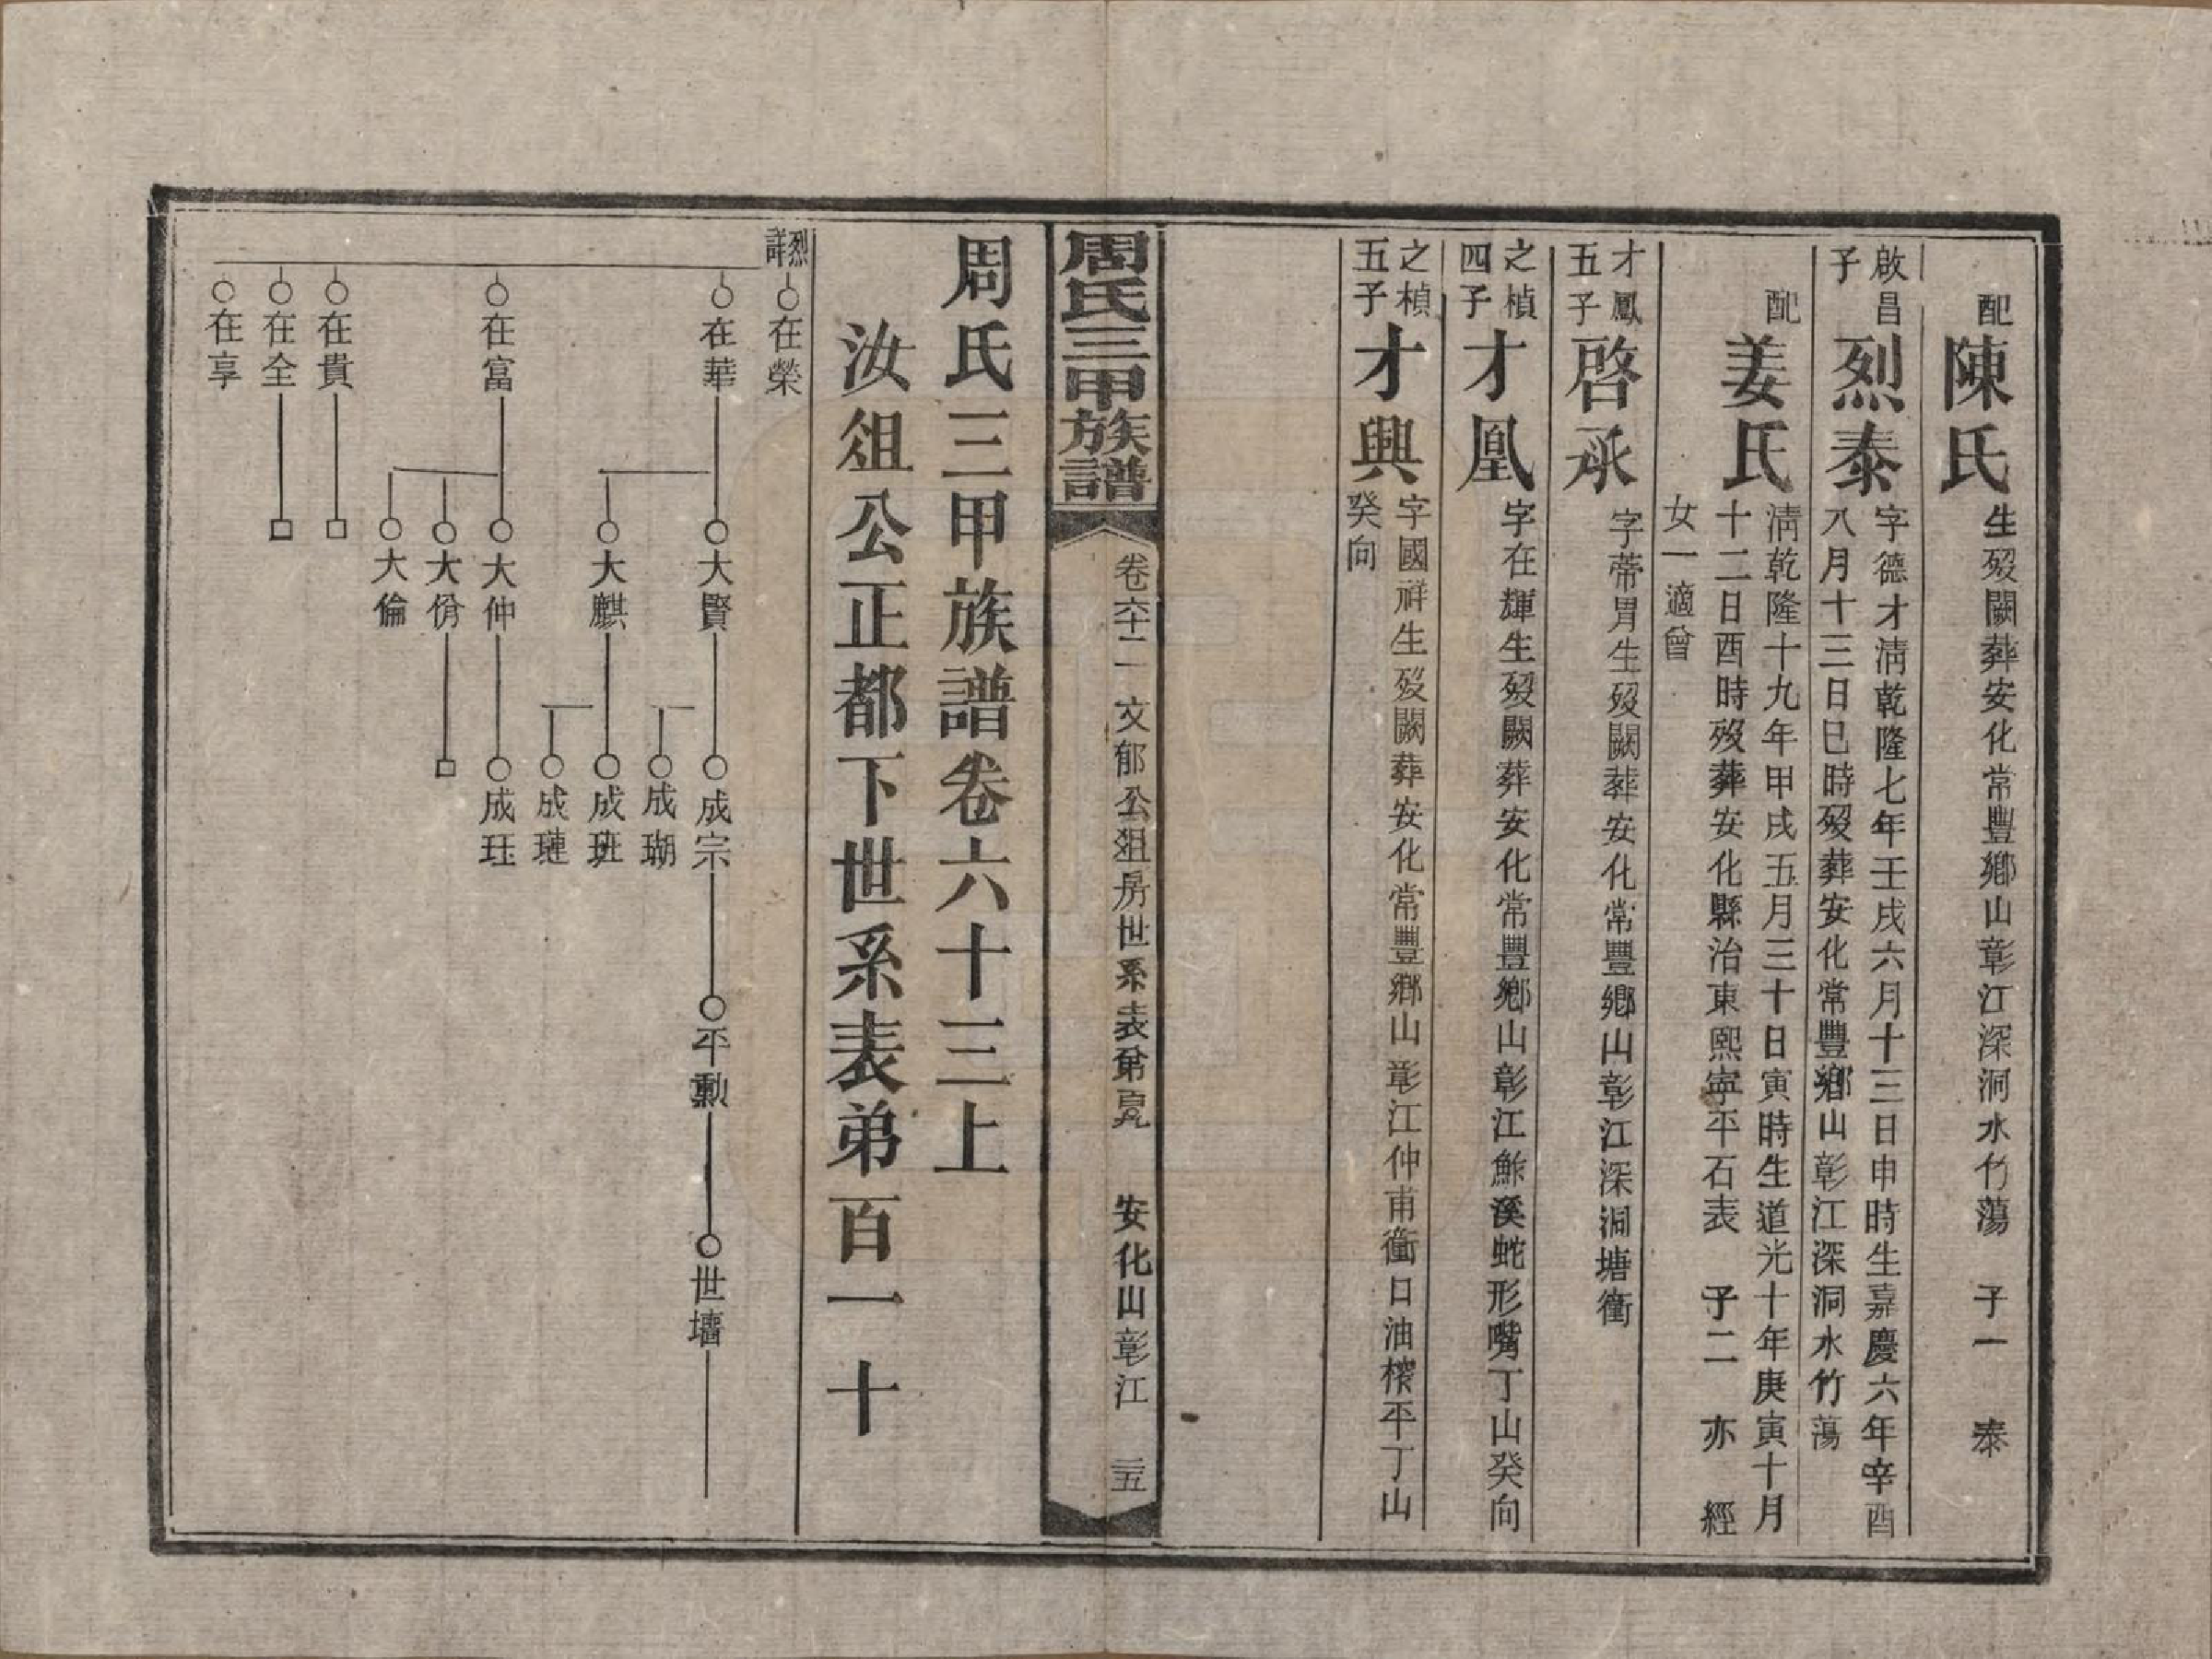 配
陳氏
生歿闕葬安化常豐鄉山彰江深洞水竹蕩 子一 泰
啟昌子
烈泰
字德才淸乾隆七年壬戌六月十三日申時生嘉慶六年辛酉
八月十三日巳時歿葬安化常豐鄉山彰江深洞水竹蕩
配
姜氏
淸乾隆十九年甲戌五月三十日寅時生道光十年庚寅十月
十二日酉時歿葬安化縣治東熙寧平石表 子二 亦 經
女一適曾
才鳳五子
啓承
字蒂胃生歿闕葬安化常豐鄉山彰江深洞塘衝
之楨四子
才凰
字在輝生歿闕葬安化常豐鄉山彰江鮓溪蛇形嘴丁山癸向
之楨五子
才興
字國祥生歿闕葬安化常豐鄉山彰江仲甫衝口油榨平丁山
癸向
周氏三甲族譜
卷六十二 文郁公狙房世系表第百九 安化山彰江 三五
周氏三甲族譜卷六十三上
汝俎公正都下世系表弟百一十
烈詳
在榮
在華 大賢 成宗 平勳 世墻
成瑚
大麒 成班
成璉
在富 大仲 成珏
大佾
大倫
在貴
在全
在享